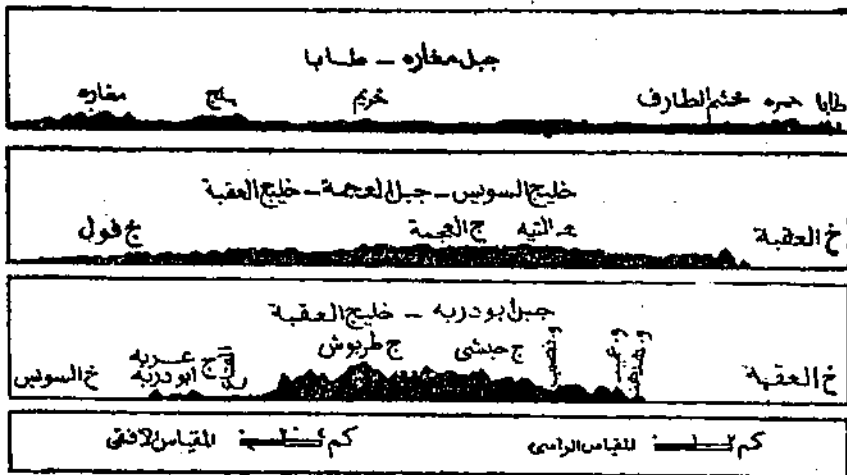 جبل مغاره - طابا
طابا حمره خشم الطارف خريم يلج مغاره
خليج السويس - جبل العجمة - خليج العقبة
خ العقبة هـ التيه ج العجمة ج فول
جبل ابو دربه - خليج العقبة
خ العقبة و نصب ج حبشى ج طربوش ج عربه خ السويس
ابو دربه
كم المقياس الراسى كم المقياس الافقى